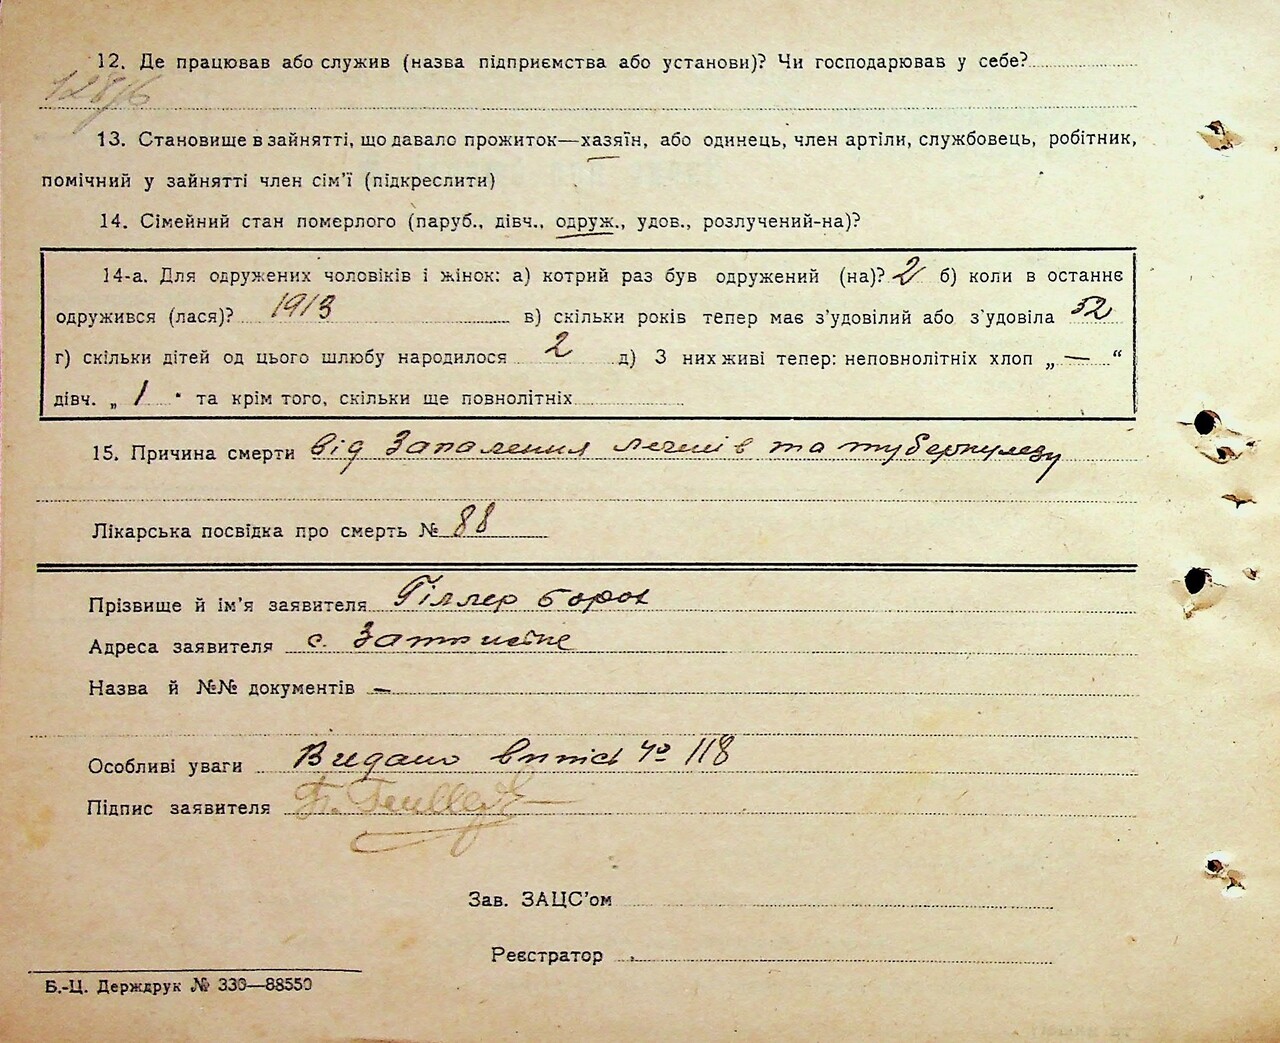 12. Де працював або служив (назва підприємства або установи)? Чи господарював у себе?
128/6
13. Становище в зайнятті, що давало прожиток—хазяїн, або одинець, член артіли, службовець, робітник,
помічний у зайнятті член сім’ї (підкреслити)
14. Сімейний стан померлого (паруб., дівч., одруж., удов., розлучений-на)?
14-а. Для одружених чоловіків і жінок: а) котрий раз був одружений (на)? 2 б) коли в останнє
одружився (лася)? 1913 в) скільки років тепер має з’удовілий або з’удовіла 52
г) скільки дітей од цього шлюбу народилося 2 д) З них живі тепер: неповнолітніх хлоп „ — “
дівч. „ 1 та крім того, скільки ще повнолітніх
15. Причина смерти від Запалення легенів та туберкулезу
Лікарська посвідка про смерть № 88
Прізвище й ім’я заявителя Гіллер
Адреса заявителя с. Затишне
Назва й №№ документів —
Особливі уваги Видано випис № 118
Підпис заявителя
Зав. ЗАЦС’ом
Реєстратор
Б.-Ц. Держдрук № 330—88550